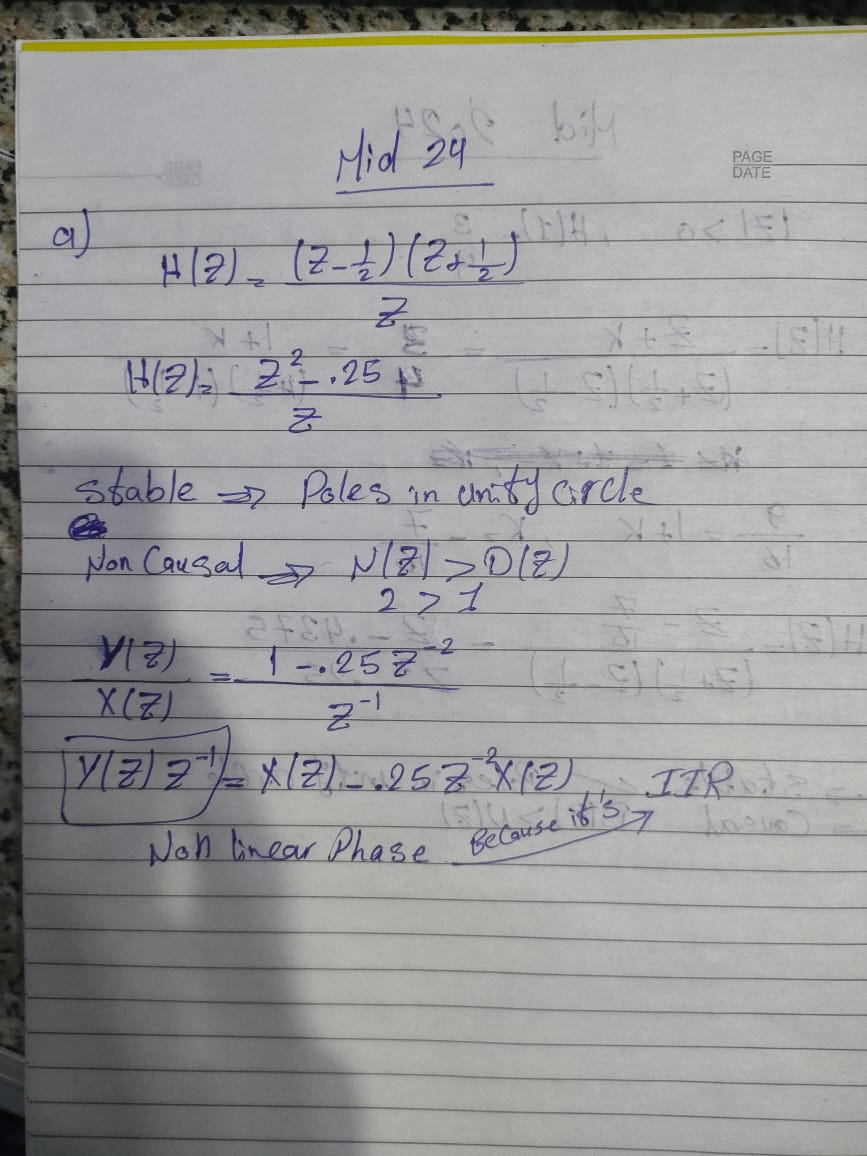 Mid 24
PAGE
DATE
a)
H(Z) = (Z - 1/2)(Z + 1/2) / Z
H(Z) = Z² - .25 / Z
Stable ⇒ Poles in unity circle
Non Causal ⇒ N(Z) > D(Z)
2 > 1
Y(Z) / X(Z) = 1 - .25 Z⁻² / Z⁻¹
Y(Z) Z⁻¹ = X(Z) - .25 Z⁻² X(Z) IIR
Non linear Phase Because it's